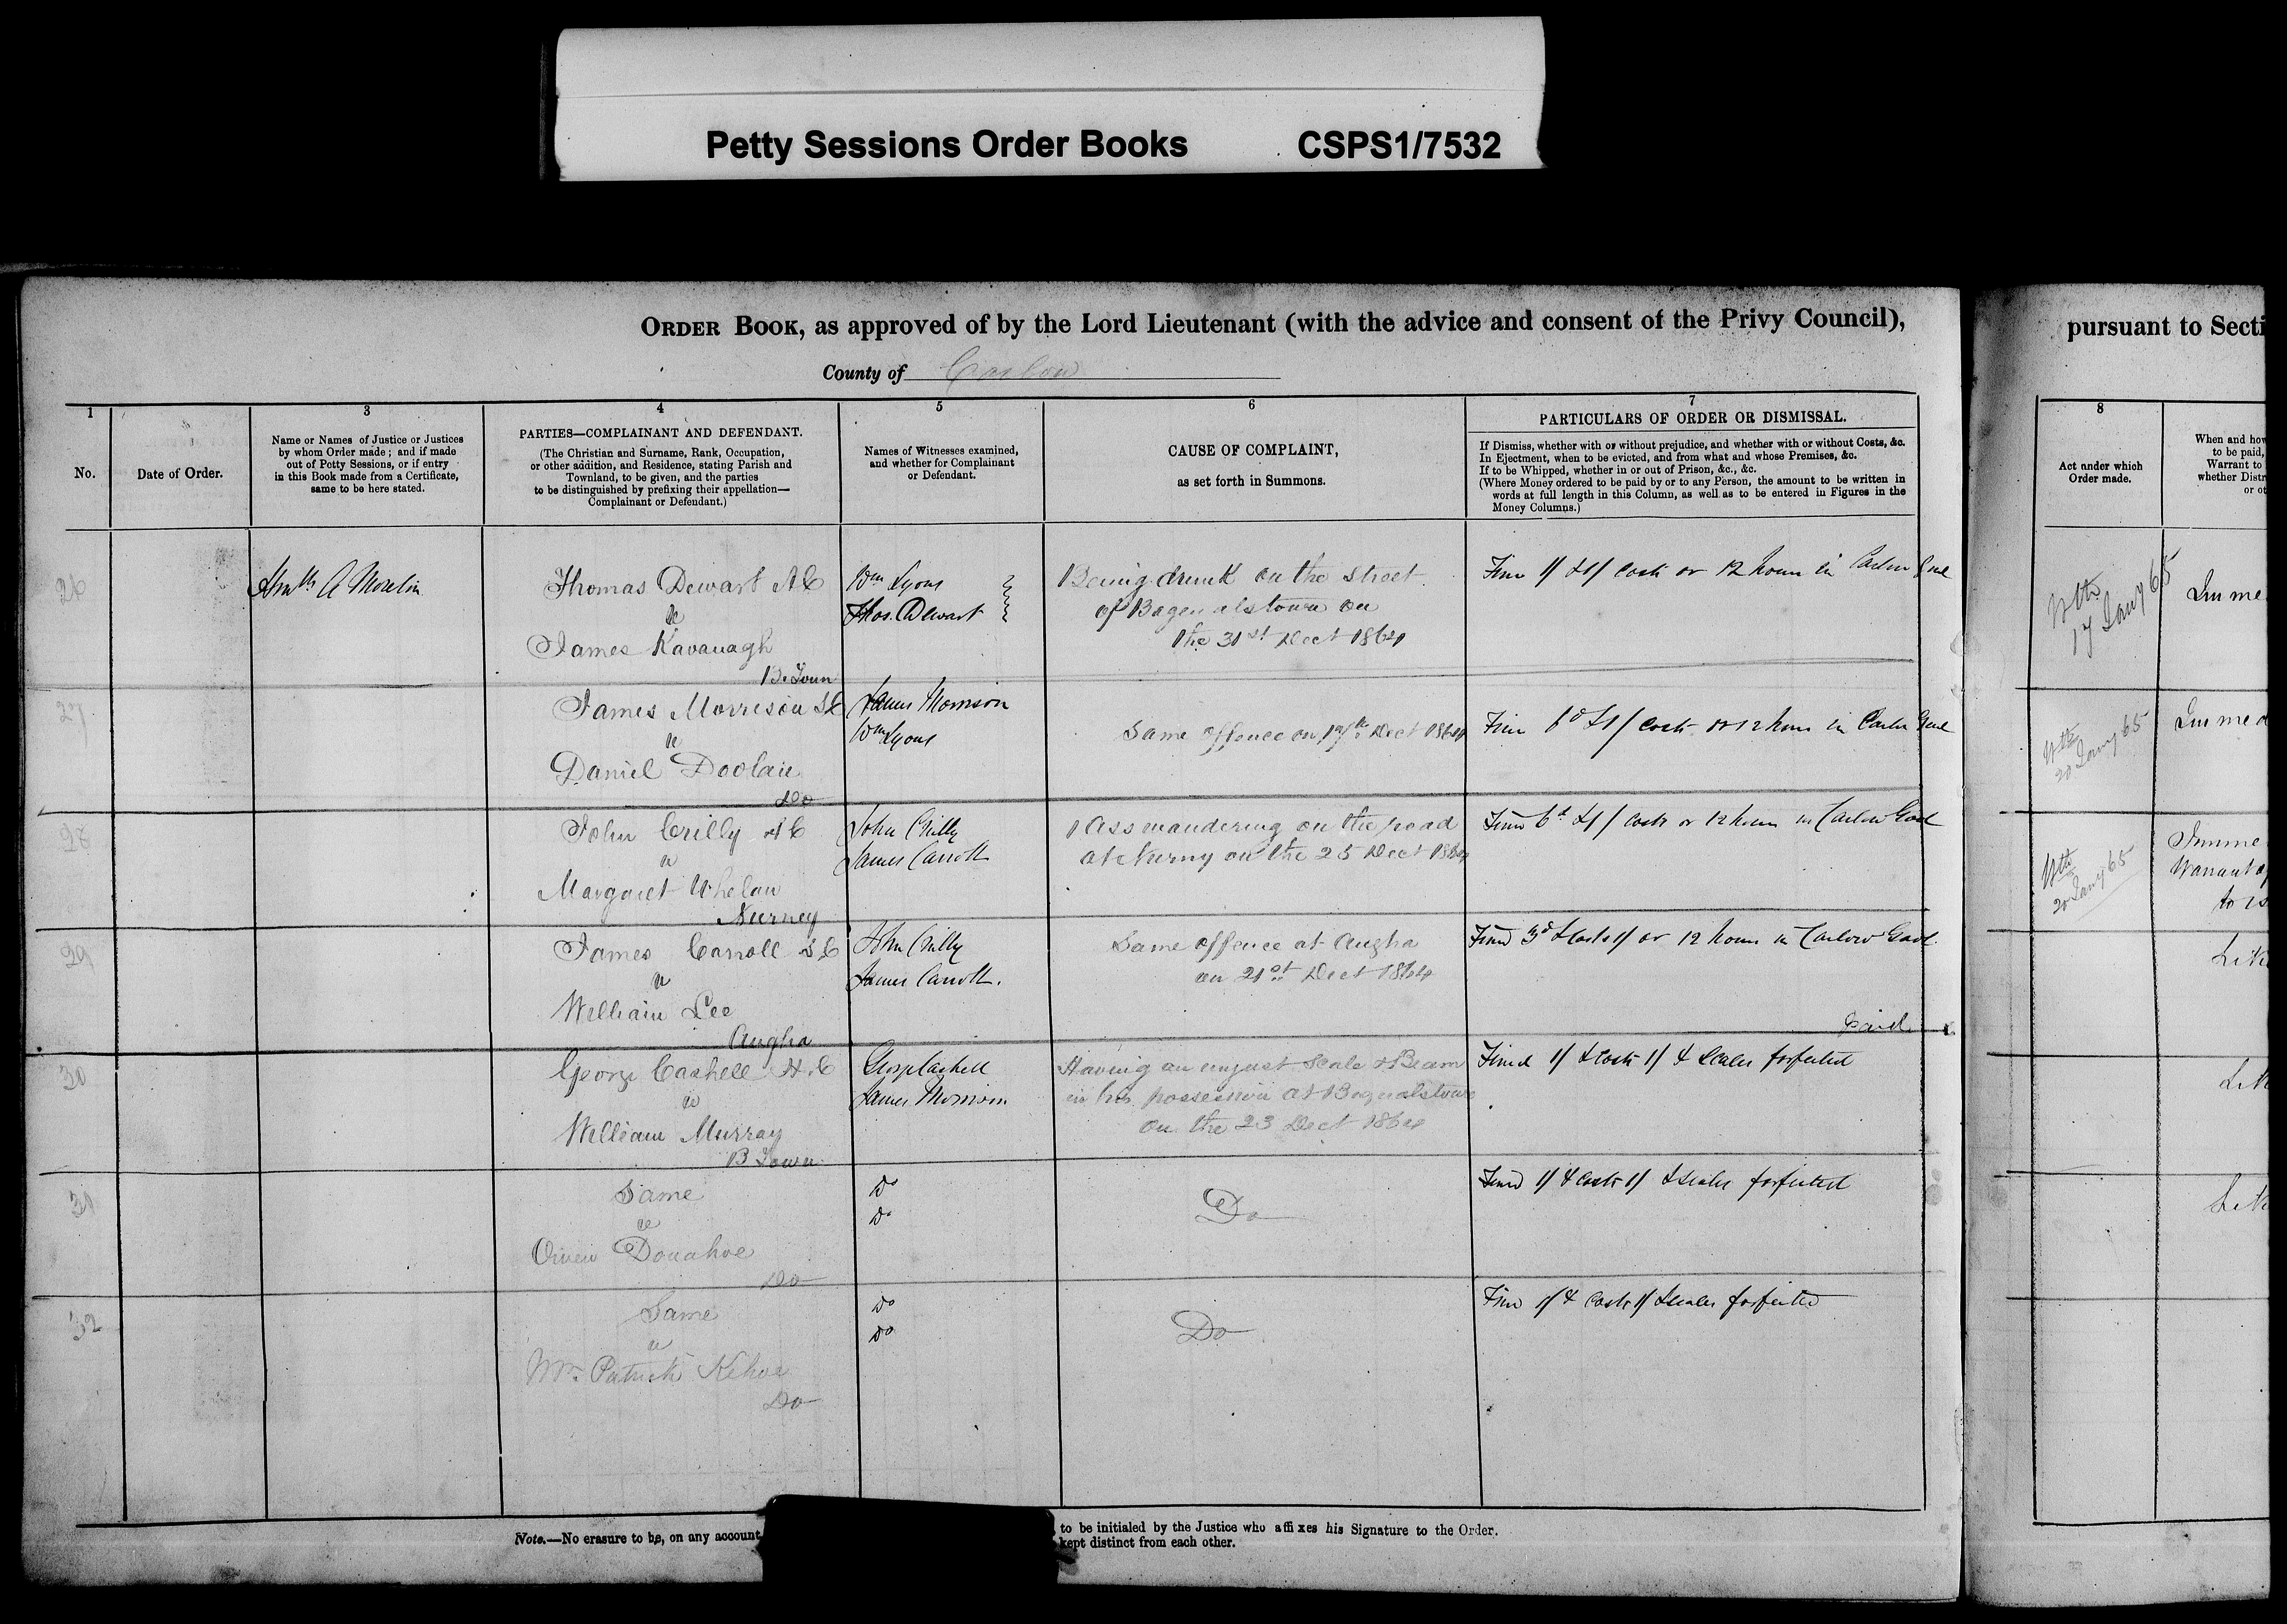 Petty Sessions Order Books CSPS1/7532
ORDER BOOK, as approved of by the Lord Lieutenant (with the advice and consent of the Privy Council),
pursuant to Secti
County of Carlow
1
3
4
5
6
7
8
No.
Date of Order.
Name or Names of Justice or Justices
by whom Order made; and if made
out of Petty Sessions, or if entry
in this Book made from a Certificate,
same to be here stated.
PARTIES—COMPLAINANT AND DEFENDANT.
(The Christian and Surname, Rank, Occupation,
or other addition, and Residence, stating Parish and
Townland, to be given, and the parties
to be distinguished by prefixing their appellation—
Complainant or Defendant.)
Names of Witnesses examined,
and whether for Complainant
or Defendant.
CAUSE OF COMPLAINT,
as set forth in Summons.
PARTICULARS OF ORDER OR DISMISSAL.
If Dismiss, whether with or without prejudice, and whether with or without Costs, &c.
In Ejectment, when to be evicted, and from what and whose Premises, &c.
If to be Whipped, whether in or out of Prison, &c., &c.
(Where Money ordered to be paid by or to any Person, the amount to be written in
words at full length in this Column, as well as to be entered in Figures in the
Money Columns.)
Act under which
Order made.
When and how
to be paid,
Warrant to
whether Distr
or ot
26
Thomas Dewart A C
v
James Kavanagh
B. Town
Wm Lyons
Thos. Dewart
Being drunk on the Street
of Bagenalstown on
the 31st Dect 1864
Fine 1/ & 1/ Costs or 12 hours in Carlow Gaol
17 Jany 65
Imme
27
James Morrison S C
v
Daniel Doolan
Do
James Morrison
Wm Lyons
Same offence on Dect 1864
Fine 6d & 1/ Costs or 12 hours in Carlow Gaol
20 Jany 65
Immed
28
John Crilly A C
v
Margaret Whelan
Nurney
John Crilly
James Carroll
1 Ass wandering on the road
at Nurny on the 25 Dect 1864
Fined 6d & 1/ Costs or 12 hours in Carlow Gaol
20 Jany 65
Imme
Warrant
to is
29
James Carroll S C
v
William Lee
Augha
John Crilly
James Carroll.
Same offence at Augha
on 21st Dect 1864
Fined 3d & Costs 1/ or 12 hours in Carlow Gaol.
Paid
Like
30
George Cashell H. C
v
William Murray
B Town
Geo Cashell
James Morrison
Having an unjust Scale & Beam
in his possession at Bagnalstown
on the 23 Dect 1864
Fined 1/ & Costs 1/ & Scales forfeited
Like
31
Same
v
Owen Donahoe
Do
Do
Do
Do
Fined 1/ & Costs 1/ & Scales forfeited
Like
32
Same
v
Patrick Kehoe
Do
Do
Do
Do
Fine 1/ & Costs 1/ & Scales forfeited
Note.—No erasure to be, on any account
to be initialed by the Justice who affixes his Signature to the Order.
kept distinct from each other.